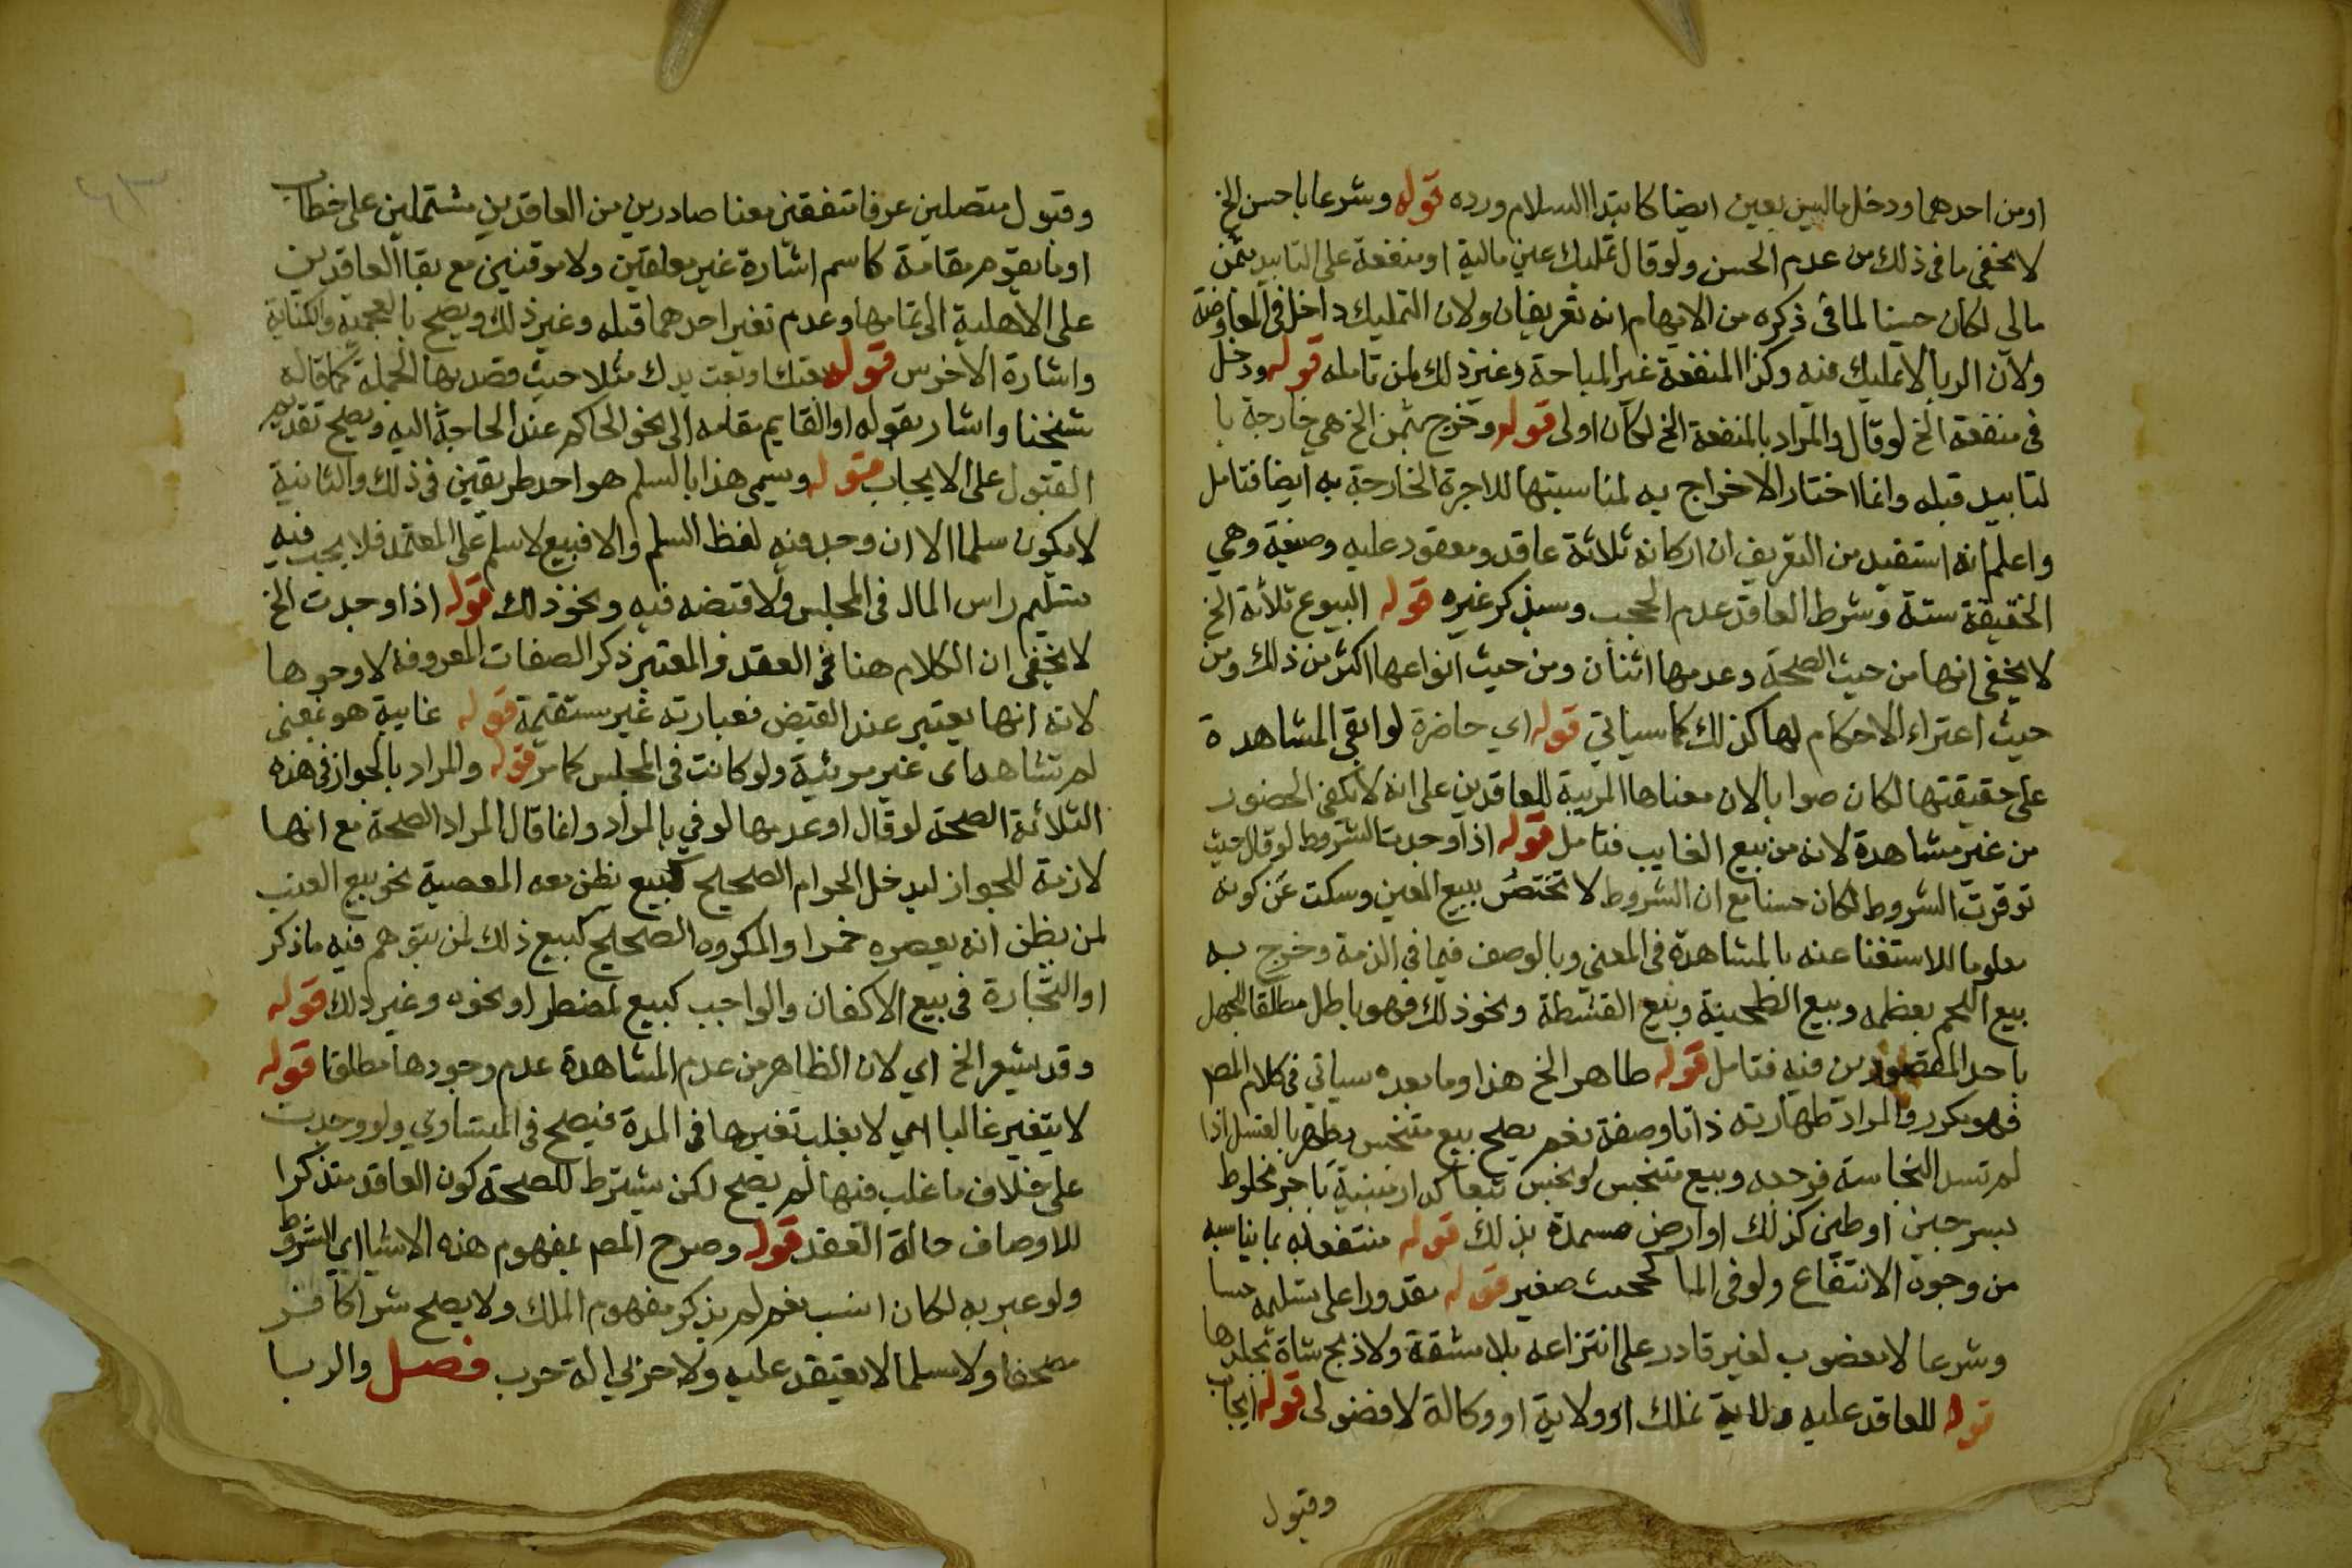 او من احدهما ودخل ماليس بعين ايضا كابتدا السلام ورده قوله وشرعا باحسن الخ
لا يخفى ما فى ذلك من عدم الحسن ولو قال تمليك عين مالية او منفعة على التابيد بثمن
مالى لكان حسنا لما فى ذكره من الايهام انه تعريفان ولان التمليك داخل فى المعاوضة
ولان الربا لا تمليك فيه وكذا المنفعة غير المباحة وغير ذلك لمن تامله قوله ودخل
فى منفعة الخ لو قال والمراد بالمنفعة الخ لكان اولى قوله وخرج بثمن الخ هي خارجة با
لتابيد قبله وانما اختار الاخراج به لمناسبتها للاجرة الخارجة به ايضا فتامل
واعلم انه استفيد من التعريف ان اركانه ثلاثة عاقد ومعقود عليه وصيغة وهي
الحقيقة ستة وشرط العاقد عدم الحجب وسيذكر غيره قوله البيوع ثلاثة الخ
لا يخفى انها من حيث الصحة وعدمها اثنان ومن حيث انواعها اكثر من ذلك ومن
حيث اعتراء الاحكام لها كذلك كما سياتي قوله اي حاضرة لو ابقى المشاهدة
على حقيقتها لكان صوابا لان معناها المريية للعاقدين على انه لا يكفى الحضور
من غير مشاهدة لانه من بيع الغايب فتامل قوله اذا وجدت الشروط لو قال حيث
توفرت الشروط لكان حسنا مع ان الشروط لا تختص ببيع المعين وسكت عن كونه
معلوما للاستغنا عنه بالمشاهدة فى المعين وبالوصف فيما فى الذمة وخرج به
بيع اللحم بعظمه وبيع الطحينة وبيع القشطة ونحو ذلك فهو باطل مطلقا للجهل
باحد المقصودين فيه فتامل قوله طاهر الخ هذا وما بعده سياتي فى كلام المص
فهو مكرر والمراد طهارته ذاتا وصفة نعم يصح بيع متنجس يطهر بالغسل اذا
لم تستر النجاسة فرجه وبيع متنجس او نجس تبعا كدار مبنية باجر مخلوط
بسرجين او طين كذلك او ارض مسمدة بذلك قوله منتفعا به بما يناسبه
من وجوه الانتفاع ولو فى المآ كجحش صغير قوله مقدورا على تسليمه حسا
وشرعا لا مغصوب لغير قادر على انتزاعه بلا مشقة ولا ذبح شاة بجلدها
قوله للعاقد عليه ولاية بملك او ولاية او وكالة لا فضولى قوله ايجاب
وقبول
وقبول متصلين عرفا متفقين معنا صادرين من العاقدين مشتملين على خطاب
او ما يقوم مقامه كاسم اشارة غير معلقين ولا موقتين مع بقا العاقدين
على الاهلية الى تمامها وعدم تغير احدهما قبله وغير ذلك ويصح بالعجمية والكناية
واشارة الاخرس قوله بعتك او بعت يدك مثلا حيث قصد بها الجملة كما قاله
شيخنا واشار بقوله او القايم مقامه الى نحو الحاكم عند الحاجة اليه ويصح تقديم
القبول على الايجاب قوله وسمى هذا بالسلم هو احد طريقين فى ذلك والثانية
لا يكون سلما الا ان وجد فيه لفظ السلم والا فبيع لا سلم على المعتمد فلا يجب فيه
تسليم راس المال فى المجلس ولا قبضه فيه ونحو ذلك قوله اذا وجدت الخ
لا يخفى ان الكلام هنا فى العقد والمعتبر ذكر الصفات المعروفة لا وجودها
لانه انما يعتبر عند القبض فعبارته غير مستقيمة قوله غايبة هو بمعنى
لم تشاهد اى غير مرئية ولو كانت فى المجلس كما مر قوله والمراد بالجواز فى هذه
الثلاثة الصحة لو قال او عدمها لو في بالمراد وانما قال المراد الصحة مع انها
لازمة للجواز ليدخل الحرام الصحيح كبيع يظن معه المعصية نحو بيع العنب
لمن يظن انه يعصره خمرا والمكروه الصحيح كبيع ذلك لمن يتوهم فيه ما ذكر
او التجارة فى بيع الاكفان والواجب كبيع لمضطر او نحوه وغير ذلك قوله
وقد يشعر الخ اي لان الظاهر من عدم المشاهدة عدم وجودها مطلقا قوله
لا يتغير غالبا اي لا يغلب تغيرها فى المدة فيصح فى المتساوي ولو وجدت
على خلاف ما غلب فيها لم يصح لكن يشترط للصحة كون العاقد متذكرا
للاوصاف حالة العقد قوله وصرح المص بمفهوم هذه الاشيا اي الشروط
ولو عبر به لكان انسب نعم لم يذكر مفهوم الملك ولا يصح شرا كافر
مصحفا ولا مسلما لا يعتق عليه ولا حربي الة حرب فصل والربا